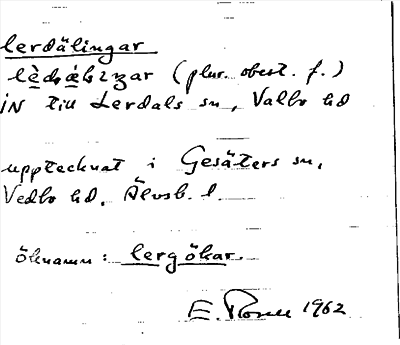 lerdälingar
(plur. obest. f.)
iN till Lerdals sn, Valbo hd
upptecknat i Gesäters sn,
Vedbo hd. Älvsb. l
öknamn: lergökar.
E. 1962